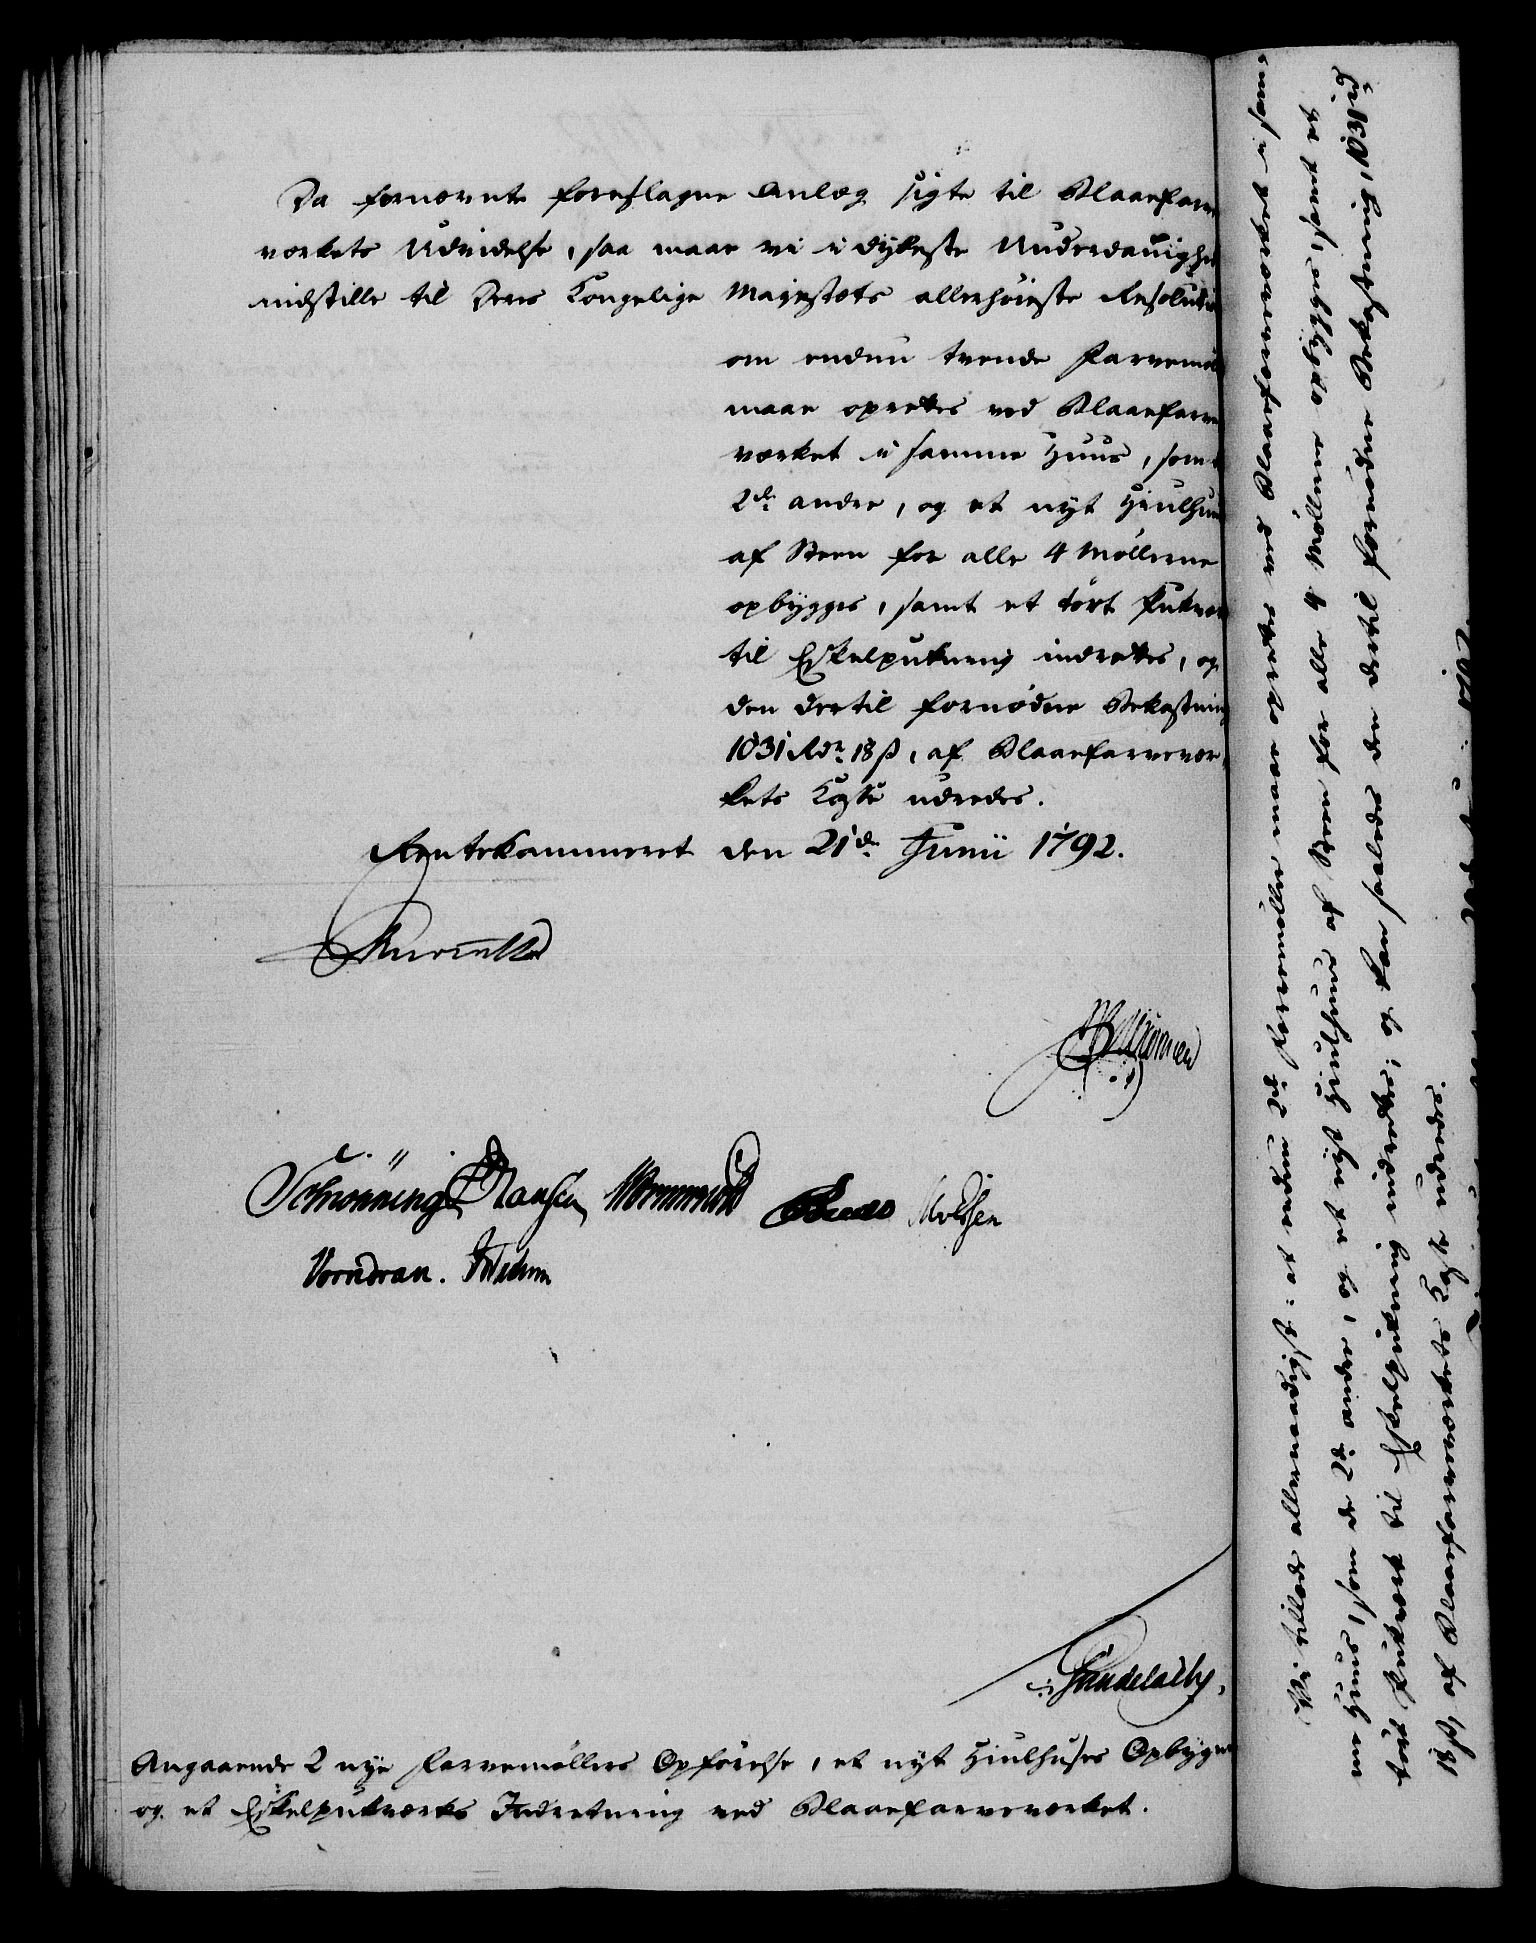 Da fornævnte foreslagne Anlæg sigte til Blaafarve
værkets Udvidelse, saa maae vi i dybeste Underdanighed
indstille til Deres Kongelige Majestæts allerhøieste Resolution
om endnu tvende Farvemøller
maae oprettes ved Blaafarve
værket i samme Huus, som de
2de andre, og et nyt Hiulhuus
af Steen for alle 4 Møllerne
opbygges, samt et tørt Pukværk
til Eskelpukning indrettes, og
den dertil fornødne Bekostning
1031 Rdr 18 ß, af Blaafarvevær-
kets Casse udredes.
Rentekammeret den 21de Junii 1792.
Schiønning Hansen Wormskiold Moldsen
Vorndran.
Angaaende 2 nye Farvemøllers Opførelse, et nyt Hiulhuses Opbygn
og et Eskelpukværks Indretning ved Blaafarveværket.
Vi tillade allernaadigst: at endnu 2de Farvemøller maae oprettes ved Blaafarveværket i sam-
me Huus, som de 2de andre, og et nyt Hiulhuus af Steen for alle 4 Møllerne opbygges, samt et
tørt Pukværk til Eskelpukning indrettes; og kan saaledes den dertil fornødne Bekostning, 1031 rd
18 ß, af Blaafarveværkets Casse udredes.
1792.